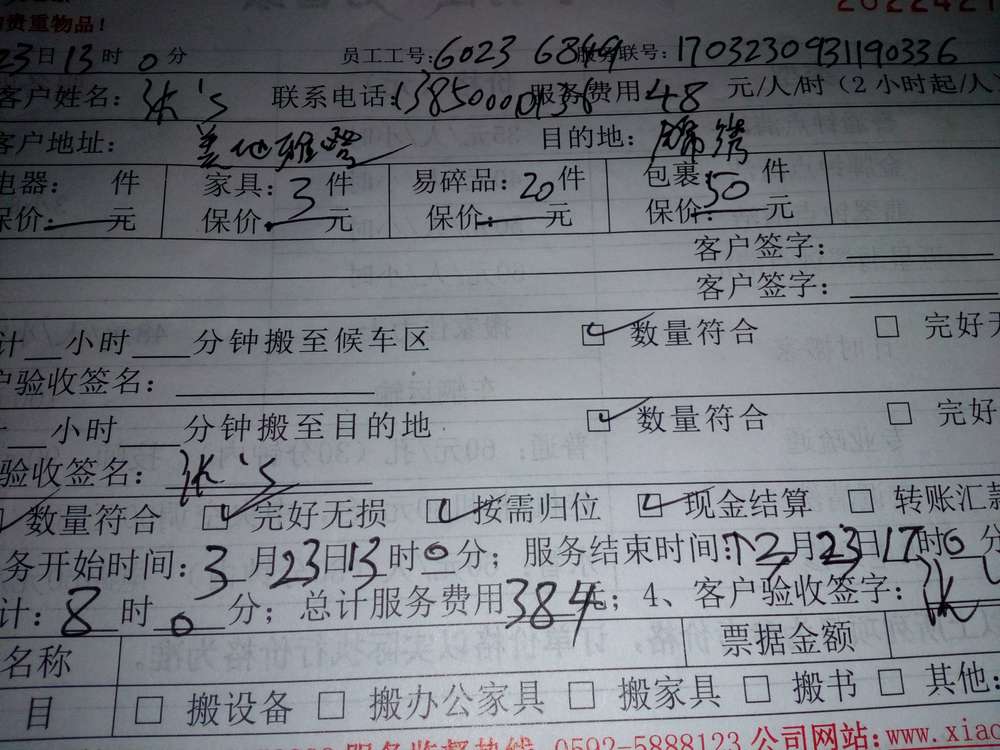 贵重物品!
23日13时0分 员工工号:6023 6869 服务联号:1703230931190336
客户姓名:张's 联系电话:13850000136 服务费用48元/人/时(2小时起/人
客户地址: 美地雅登 目的地:
电器: 件 家具:3件 易碎品:20件 包裹:50件
保价:—元 保价:—元 保价:—元 保价:—元
客户签字:
客户签字:
计__小时___分钟搬至候车区 ☑数量符合 □ 完好无
户验收签名:
__小时___分钟搬至目的地 ☑数量符合 □ 完好
验收签名:张's
数量符合 ☑完好无损 ☑按需归位 ☑现金结算 □ 转账汇款
务开始时间:3月23日13时0分;服务结束时间:3月23日17时0分
计:8时0分;总计服务费用384元;4、客户验收签字:张
名称 票据金额
目 □ 搬设备 □ 搬办公家具 □ 搬家具 □ 搬书 □ 其他:
服务监督热线 0592-5888123 公司网站:www.xiao